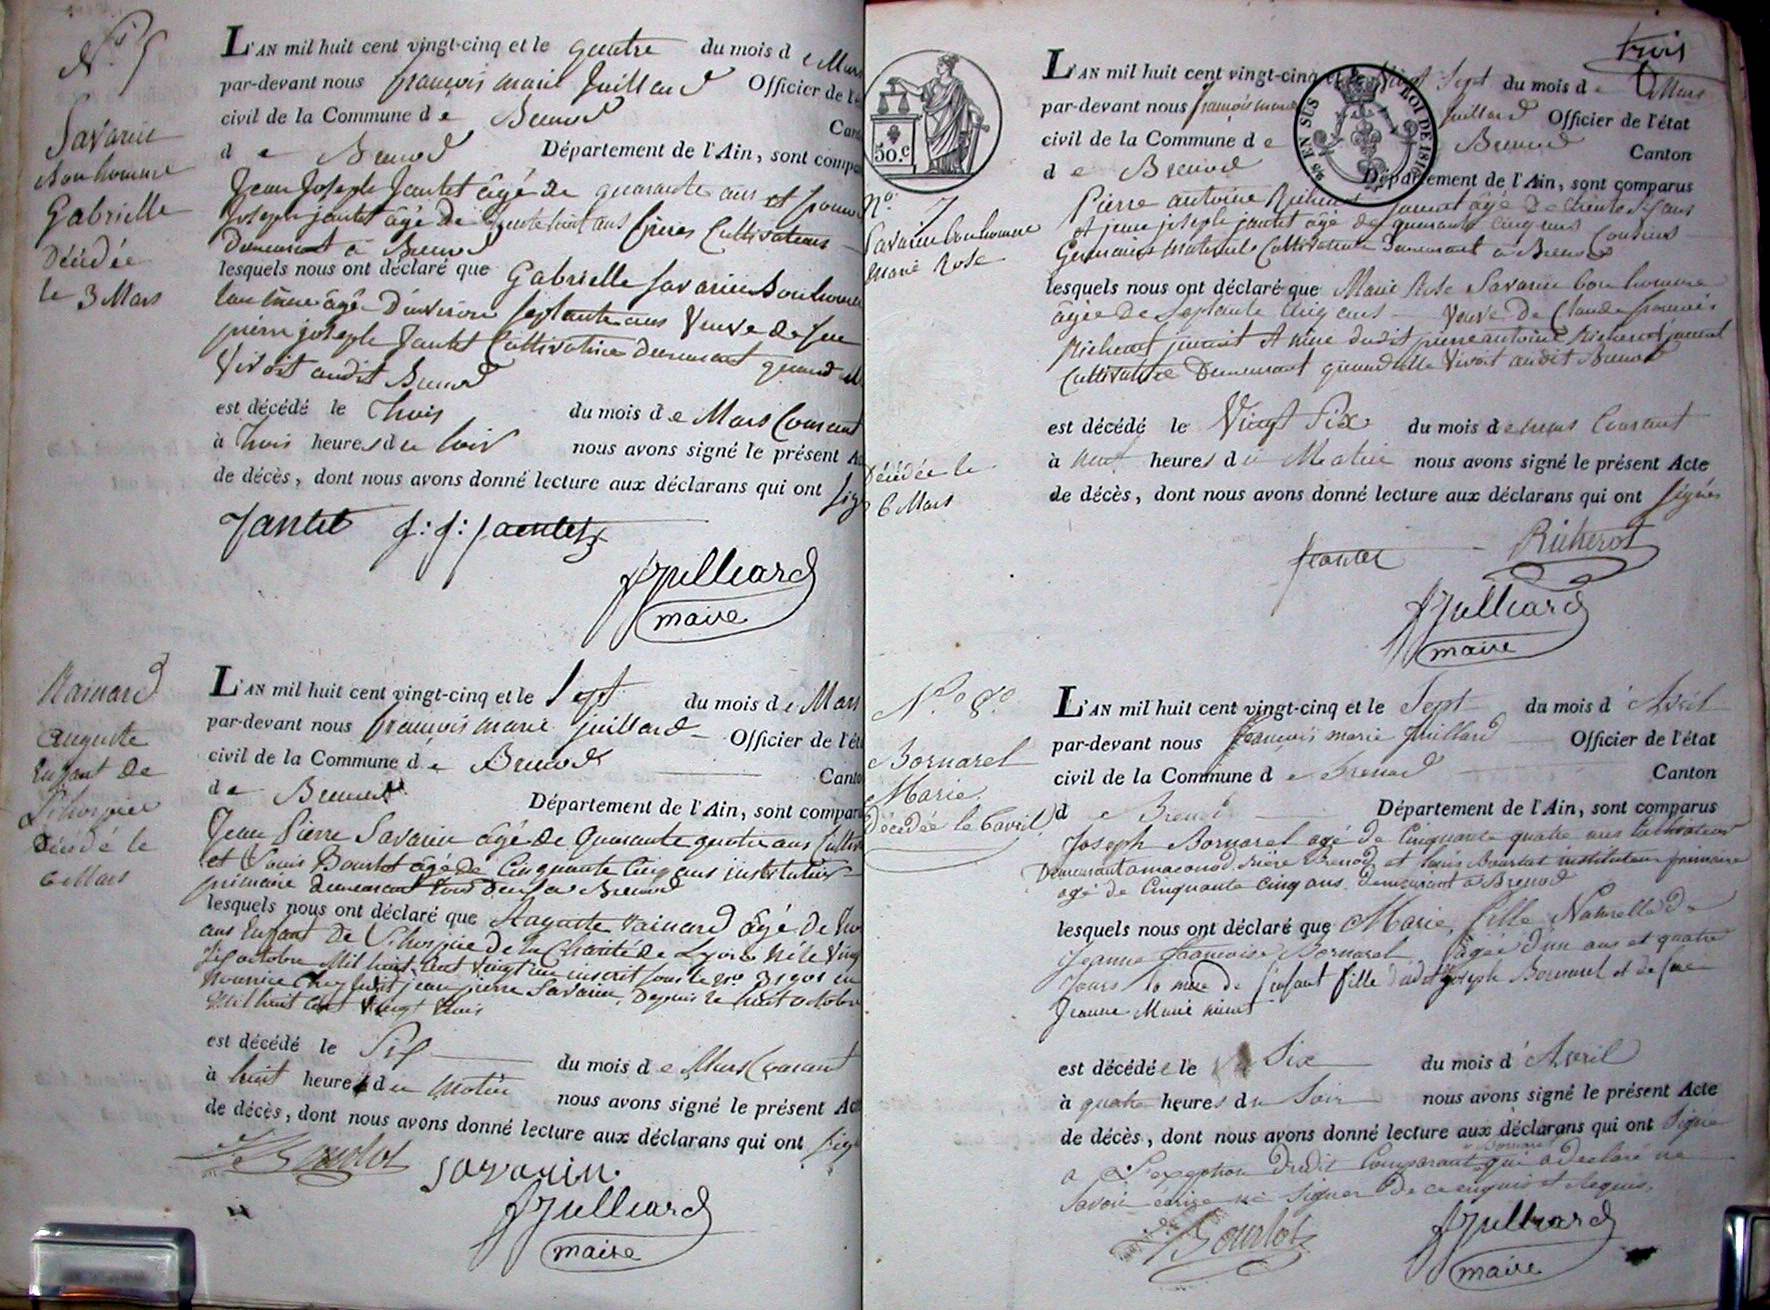 N.o 5
Savarin
Bonhomme
Gabrielle
Décédée
le 3 Mars
L'AN mil huit cent vingt-cinq et le quatre du mois de Mars
par-devant nous françois marie Juillard Officier de l'é
civil de la Commune de Brenod
Cant
de Brenod Département de l'Ain, sont compa
Jean Joseph Jantet âgé de quarante ans et
Joseph jantet âgé de trente huit ans frères Cultivateurs
Demeurant à Brenod
lesquels nous ont déclaré que Gabrielle Savarin Bonhomme
âgée D'environ septante ans Veuve de feu
pierre joseph Jantet Cultivatrice Demeurant quand
Vivoit audit Brenod
est décédé le trois du mois de Mars Courant
à trois heures du soir nous avons signé le présent Ac
de décès, dont nous avons donné lecture aux déclarans qui ont sig
Jantet J: J: Jantet
fJuilliard
maire
Rainard
Auguste
Enfant de
L'hospice
Décédé le
6 Mars
L'AN mil huit cent vingt-cinq et le Sept du mois de Mars
par-devant nous françois marie juillard Officier de l'ét
civil de la Commune de Brenod
Canto
de Brenod Département de l'Ain, sont compar
Jean Pierre Savarin âgé de Quarante quatre ans Cultiv
et Louis Bourlot âgé de Cinquante Cinq ans instituteur
primaire demeurant tous deux à Brenod
lesquels nous ont déclaré que Auguste Rainard âgé de
ans Enfant de L'hospice de la Charité de Lyon Né le Vingt
six octobre Mil huit cent vingt un inscrit sous le no. en
Nourrice Chez ledit jean pierre Savarin, Depuis le huit octobre
Mil huit cent Vingt trois
est décédé le Six du mois de Mars Courant
à huit heures du matin nous avons signé le présent Act
de décès, dont nous avons donné lecture aux déclarans qui ont sig
Bourlot Savarin.
fJuilliard
maire
trois
50.c
EN SUS LOI DE 1816
No. 7
Savarin bonhomme
Marie Rose
Décédée le
6 Mars
L'AN mil huit cent vingt-cinq et le Vingt Sept du mois de Mars
par-devant nous françois marie Juillard Officier de l'état
civil de la Commune de Brenod
Canton
de Brenod Département de l'Ain, sont comparus
Pierre antoine Richerot jeunet âgé De trente six ans
et jean joseph jantet âgé de quarante cinq ans Cousins
Germains Maternels Cultivateurs Demeurant à Brenod
lesquels nous ont déclaré que Marie Rose Savarin bonhomme
âgée De Septante Cinq ans Veuve de Claude françois
Richerot jeunet et mère dudit pierre antoine Richerot jeunet
Cultivatrice Demeurant quand elle Vivoit audit Brenod
est décédé le Vingt Six du mois de mars Courant
à heures du Matin nous avons signé le présent Acte
de décès, dont nous avons donné lecture aux déclarans qui ont signés
Jeantet Richerot
fJuilliard
maire
N.o 8.o
Bornarel
Marie
Décédée le 6 avril
L'AN mil huit cent vingt-cinq et le Sept du mois d'Avril
par-devant nous françois marie Juillard Officier de l'état
civil de la Commune de Brenod
Canton
de Brenod Département de l'Ain, sont comparus
Joseph Bornarel agé de Cinquante quatre ans Cultivateur
Demeurant a macconod Rière Brenod et louis Bourlot instituteur primaire
agé de Cinquante cinq ans demeurant à Brenod
lesquels nous ont déclaré que Marie, fille Naturelle de
Jeanne françoise Bornarel agée d'un ans et quatre
Jours la mère de l'enfant fille dudit Joseph Bornarel et de feue
Jeanne Marie
est décédée le Six du mois d'Avril
à quatre heures du Soir nous avons signé le présent Acte
de décès, dont nous avons donné lecture aux déclarans qui ont Signé
a L'exception dudit Comparant Bornarel qui a declaré ne
Savoir écrire ni Signer de ce enquis et Requis.
Bourlot
fJuilliard
maire